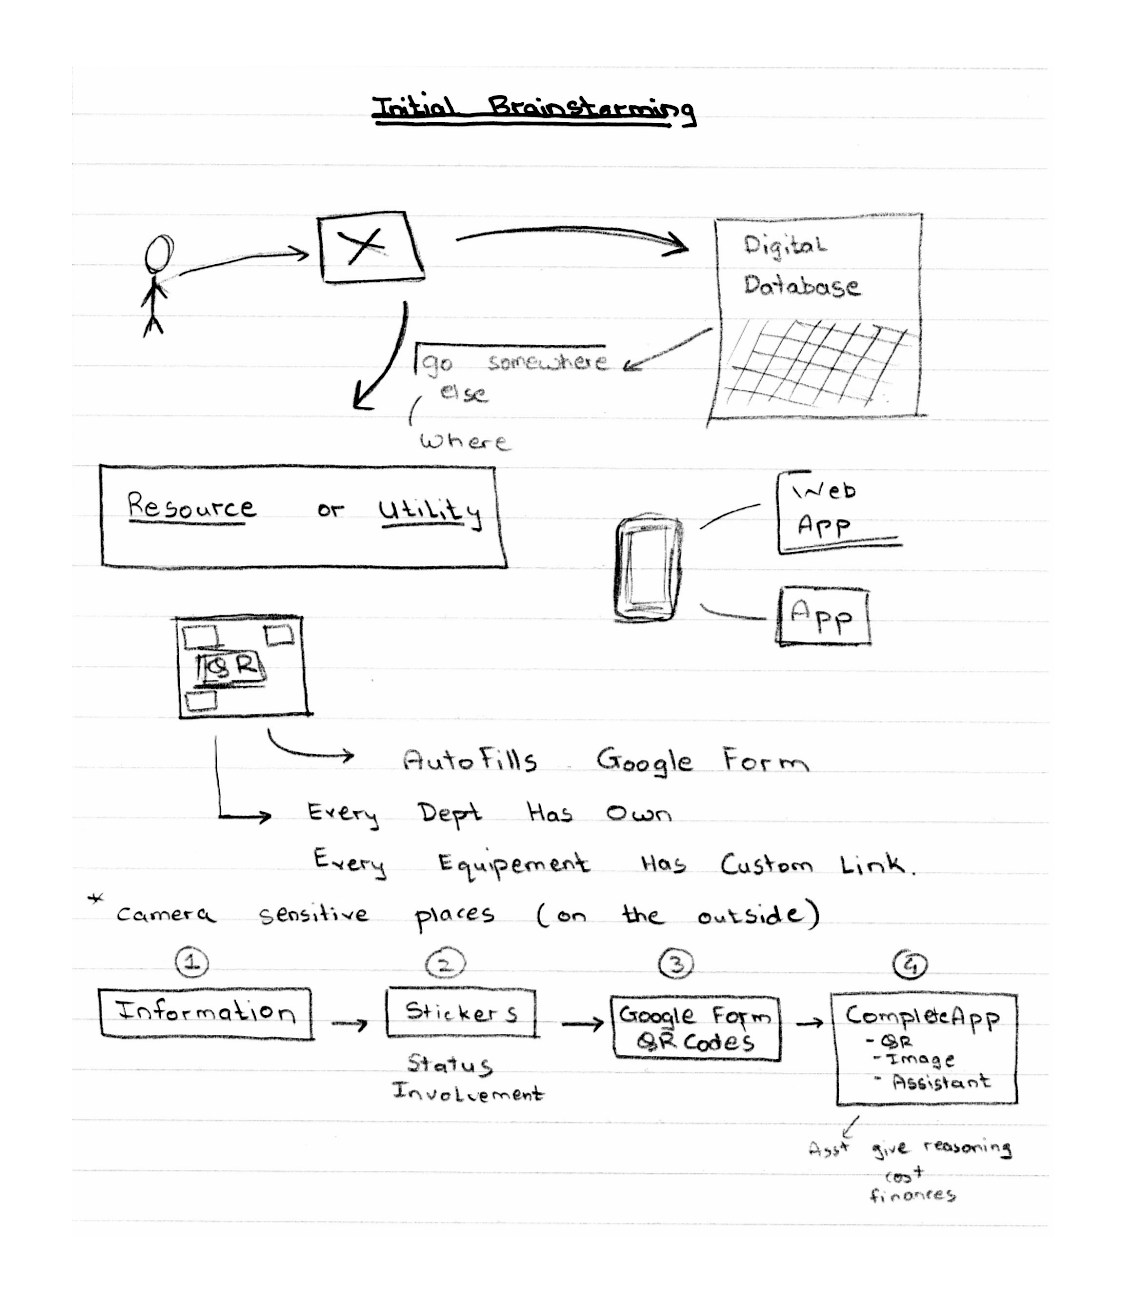 Initial Brainstorming
X
Digital
Database
go somewhere
else
where
Resource or Utility
Web
App
App
QR
AutoFills Google Form
Every Dept Has Own
Every Equipement Has Custom Link.
* camera sensitive places (on the outside)
1 2 3 4
Information
Stickers
Status
Involvement
Google Form
QR Codes
Complete App
- QR
- Image
- Assistant
Asst give reasoning
cost
finances